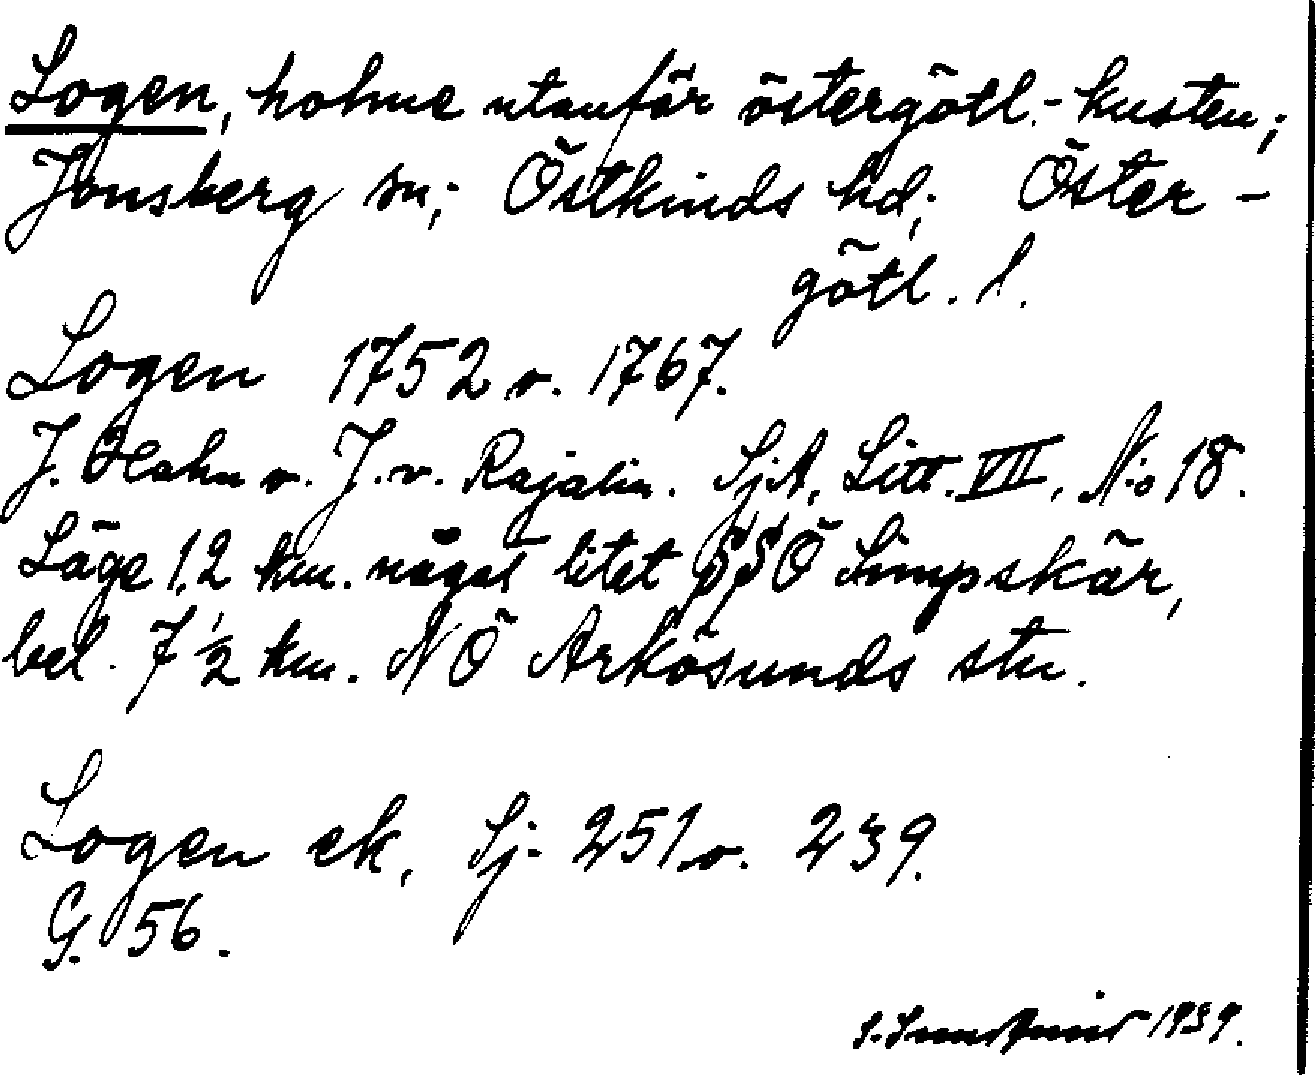 Logen, holme utanför östergötl.-kusten;
Jonsberg sn; Östkinds hd; Öster-
götl. l.
Logen 1752 o. 1767.
J. Hahn o. J. v. Rajalin. SjA, Litt. VII, N:o 18.
Läge 1,2 km. något litet SSÖ Limpskär,
bel. 7 1/2 km. NÖ Arkösunds stn.
Logen ek, Sj. 251 o. 239.
G. 56.
1939.